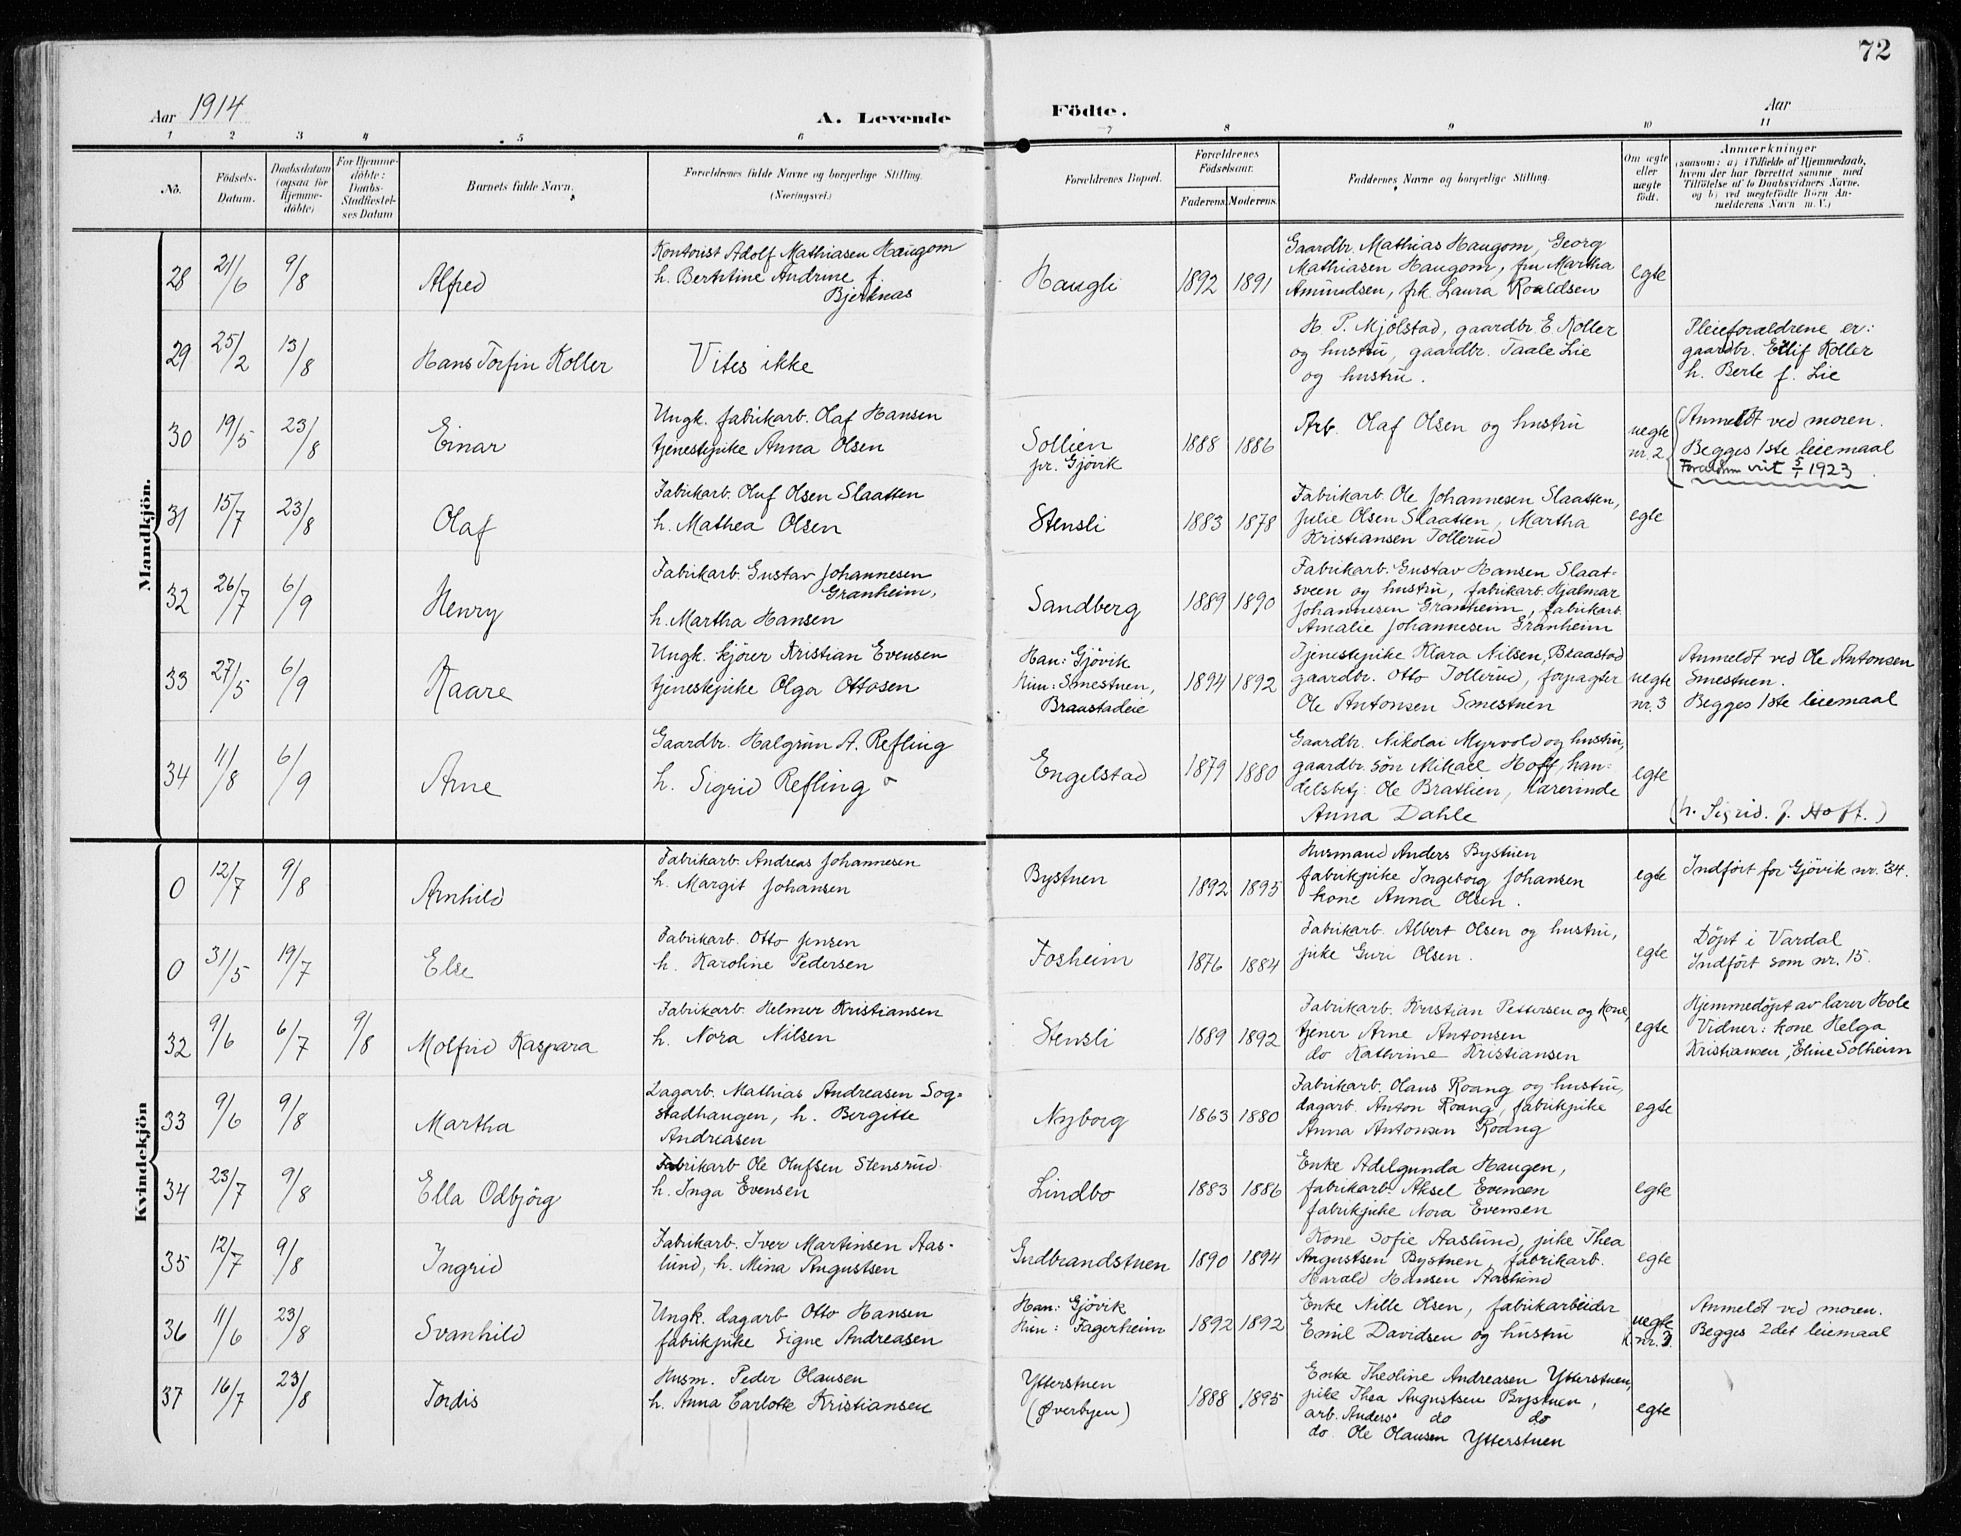 72
Aar 1914
A. Levende
Födte.
Aar
1 2 3 4 5 6 7 8 9 10 11
No.
Födsels-
Datum.
Daabsdatum
(ogsaa for
Hjemme-
döbte)
For Hjemme-
döbte:
Daabs-
Stadfæstel-
ses Datum
Barnets fulde Navn.
Forældrenes fulde Navne og borgerlige Stilling.
(Næringsvei.)
Forældrenes Bopæl.
Forældrenes
Födselsaar.
Faderens. Moderens.
Faddernes Navne og borgerlige Stilling.
Om ægte
eller
uægte
födt.
Anmærkninger
(saasom: a) i Tilfælde af Hjemmedaab,
hvem der har forrettet samme, med
Tilföielse af to Daabsvidners Navne,
og b) ved uægtefödte Börn An-
melderens Navn m. V.)
Mandkjön.
28 21/6 9/8
Alfred
Kontorist Adolf Mathiasen Haugom
h. Berntine Andrine f.
Bjerknas
Haugli
1892 1891
Gaardbr. Mathias Haugom, Georg
Mathiasen Haugom, fru Martha
Amundsen, frk. Laura Roaldsen
egte
29 25/2 13/8
Hans Torfin Koller
Vites ikke
H. P. Mjölstad, gaardbr. E Koller
og hustru, gaardbr. Taale Lie
og hustru.
Pleieforældrene er:
gaardbr. Eilif Koller
h. Berte f. Lie
30 19/5 23/8
Einar
Ungk. fabrikarb. Olaf Hansen
tjenestepike Anna Olsen
Sollien
pr. Gjövik
1888 1886
Arb. Olaf Olsen og hustru
uegte
nr. 2
Anmeldt ved moren.
Begges 1ste leiemaal
Foreldrene viet 5/1 1923.
31 15/7 23/8
Olaf
Fabrikarb. Oluf Olsen Slaatten
h. Mathea Olsen
Stensli
1883 1878
Fabrikarb. Ole Johannesen Slaatten,
Julie Olsen Slaatten, Martha
Kristiansen Tollerud
egte
32 26/7 6/9
Henry
Fabrikarb. Gustav Johannesen
Granheim,
h. Martha Hansen
Sandberg
1889 1890
Fabrikarb. Gustav Hansen Slaat-
sveen og hustru, fabrikarb. Hjalmar
Johannesen Granheim, fabrikarb.
Amalie Johannesen Granheim
33 27/5 6/9
Kaare
Ungk. kjörer Kristian Evensen
tjenestepike Olga Ottosen
Han: Gjövik
Hun: Smestuen,
Braastadeie
1894 1892
Tjenestepike Klara Nilsen, Braastad
gaardbr. Otto Tollerud, forpagter
Ole Antonsen Smestuen
uegte
nr. 3
Anmeldt ved Ole Antonsen
Smestuen.
Begges 1ste leiemaal
34 11/8 6/9
Arne
Gaardbr. Halgrim A. Refling
h. Sigrid Refling
Engelstad
1879 1880
Gaardbr. Nikolai Myrvold og hustru,
gaardbr. sön Mikael Hoff, han-
delsbetj. Ole Bratlien, lærerinde
Anna Dahle
egte
(h. Sigrid. f. Hoff.)
Kvindekjön
0 12/7 9/8
Arnhild
Fabrikarb. Andreas Johannesen
h. Margit Johansen
Bystuen
1892 1895
Husmand Anders Bystuen
fabrikpike Ingeborg Johansen
kone Anna Olsen.
egte
Indfört for Gjövik nr. 34.
0 31/5 19/7
Else
Fabrikarb. Otto Jensen
h. Karoline Pedersen
Fosheim
1876 1884
Fabrikarb. Albert Olsen og hustru,
pike Guri Olsen.
egte
Döpt i Vardal
Indfört som nr. 15.
32 9/6 6/7 9/8
Molfrid Kaspara
Fabrikarb. Helmer Kristiansen
h. Nora Nilsen
Stensli
1889 1892
Fabrikarb. Kristian Pettersen og kone,
tjener Arne Antonsen
do Kathrine Kristiansen
egte
Hjemmedöpt av lærer Hole
Vidner: kone Helga
Kristiansen, Eline Solheim
33 9/6 9/8
Martha
Dagarb. Mathias Andreasen Sog-
stadhaugen, h. Bergitte
Andreasen
Nyborg
1863 1880
Fabrikarb. Olaus Roang og hustru,
dagarb. Anton Roang, fabrikpike
Anna Antonsen Roang
egte
34 23/7 9/8
Ella Odbjörg
Fabrikarb Ole Olufsen Stensrud
h. Inga Evensen
Lindbo
1883 1886
Enke Adelgunda Haugen,
fabrikarb. Aksel Evensen
fabrikpike Nora Evensen
egte
35 12/7 9/8
Ingrid
Fabrikarb. Iver Martinsen Aas-
lund, h. Mina Augustsen
Gudbrandstuen
1890 1894
Kone Sofie Aaslund, pike Thea
Augustsen Bystuen, fabrikarb.
Harald Hansen Aaslund
egte
36 11/6 23/8
Svanhild
Ungk. dagarb Otto Hansen
fabrikpike Signe Andreasen
Han: Gjövik
Hun: Fagerheim
1892 1892
Enke Nille Olsen, fabrikarbeider
Emil Davidsen og hustru
uegte
K. nr. 3.
Anmeldt ved moren.
Begges 2det leiemaal
37 16/7 23/8
Tordis
Husm. Peder Olausen
h. Anna Carlotte Kristiansen
Ytterstuen
(Överbyen)
1888 1895
Enke Theoline Andreasen Ytterstuen,
pike Thea Augustsen Bystuen,
arb. Anders do do
do Ole Olausen Ytterstuen
egte